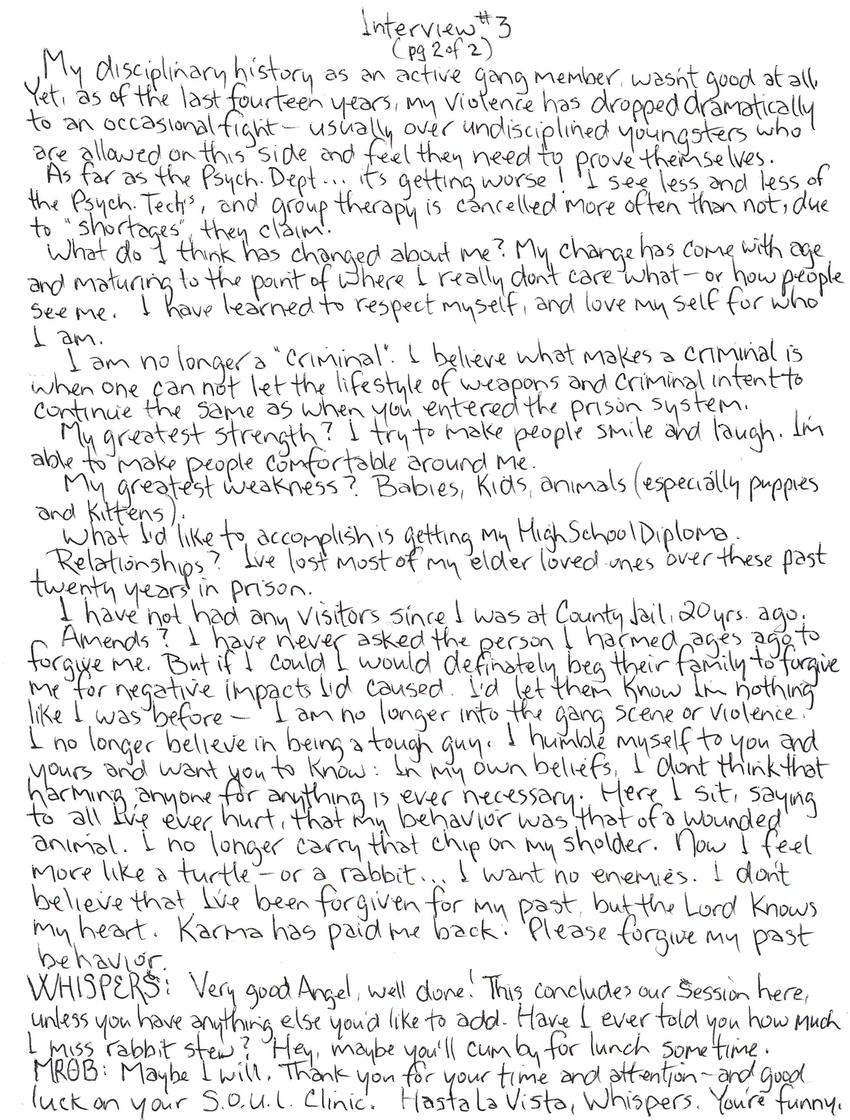 Interview #3
(pg 2 of 2)
My disciplinary history as an active gang member, wasn't good at all.
Yet, as of the last fourteen years, my violence has dropped dramatically
to an occasional fight – usually over undisciplined youngsters who
are allowed on this side and feel they need to prove themselves.
As far as the Psych. Dept... it's getting worse! I see less and less of
the Psych. Tech's, and group therapy is cancelled more often than not, due
to "shortages", they claim.
What do I think has changed about me? My change has come with age
and maturing to the point of where I really dont care what – or how people
see me. I have learned to respect myself, and love my self for who
I am.
I am no longer a "criminal". I believe what makes a criminal is
when one can not let the lifestyle of weapons and criminal intent to
continue the same as when you entered the prison system.
My greatest strength? I try to make people smile and laugh. I'm
able to make people comfortable around me.
My greatest weakness? Babies, kids, animals (especially puppies
and kittens).
What I'd like to accomplish is getting my High School Diploma.
Relationships? I've lost most of my elder loved ones over these past
twenty years in prison.
I have not had any visitors since I was at County Jail, 20 yrs. ago.
Amends? I have never asked the person I harmed ages ago to
forgive me. But if I could I would definately beg their family to forgive
me for negative impacts I'd caused. I'd let them know I'm nothing
like I was before – I am no longer into the gang scene or violence.
I no longer believe in being a tough guy. I humble myself to you and
yours and want you to know: In my own beliefs, I dont think that
harming anyone for anything is ever necessary. Here I sit, saying
to all I've ever hurt, that my behavior was that of a wounded
animal. I no longer carry that chip on my sholder. Now I feel
more like a turtle – or a rabbit... I want no enemies. I don't
believe that I've been forgiven for my past, but the Lord knows
my heart. Karma has paid me back. Please forgive my past
behavior.
WHISPERS: Very good Angel, well done! This concludes our Session here,
unless you have anything else you'd like to add. Have I ever told you how much
I miss rabbit stew? Hey, maybe you'll cum by for lunch some time.
MRGB: Maybe I will. Thank you for your time and attention – and good
luck on your S.O.U.L. Clinic. Hasta La Vista, Whispers. You're funny.